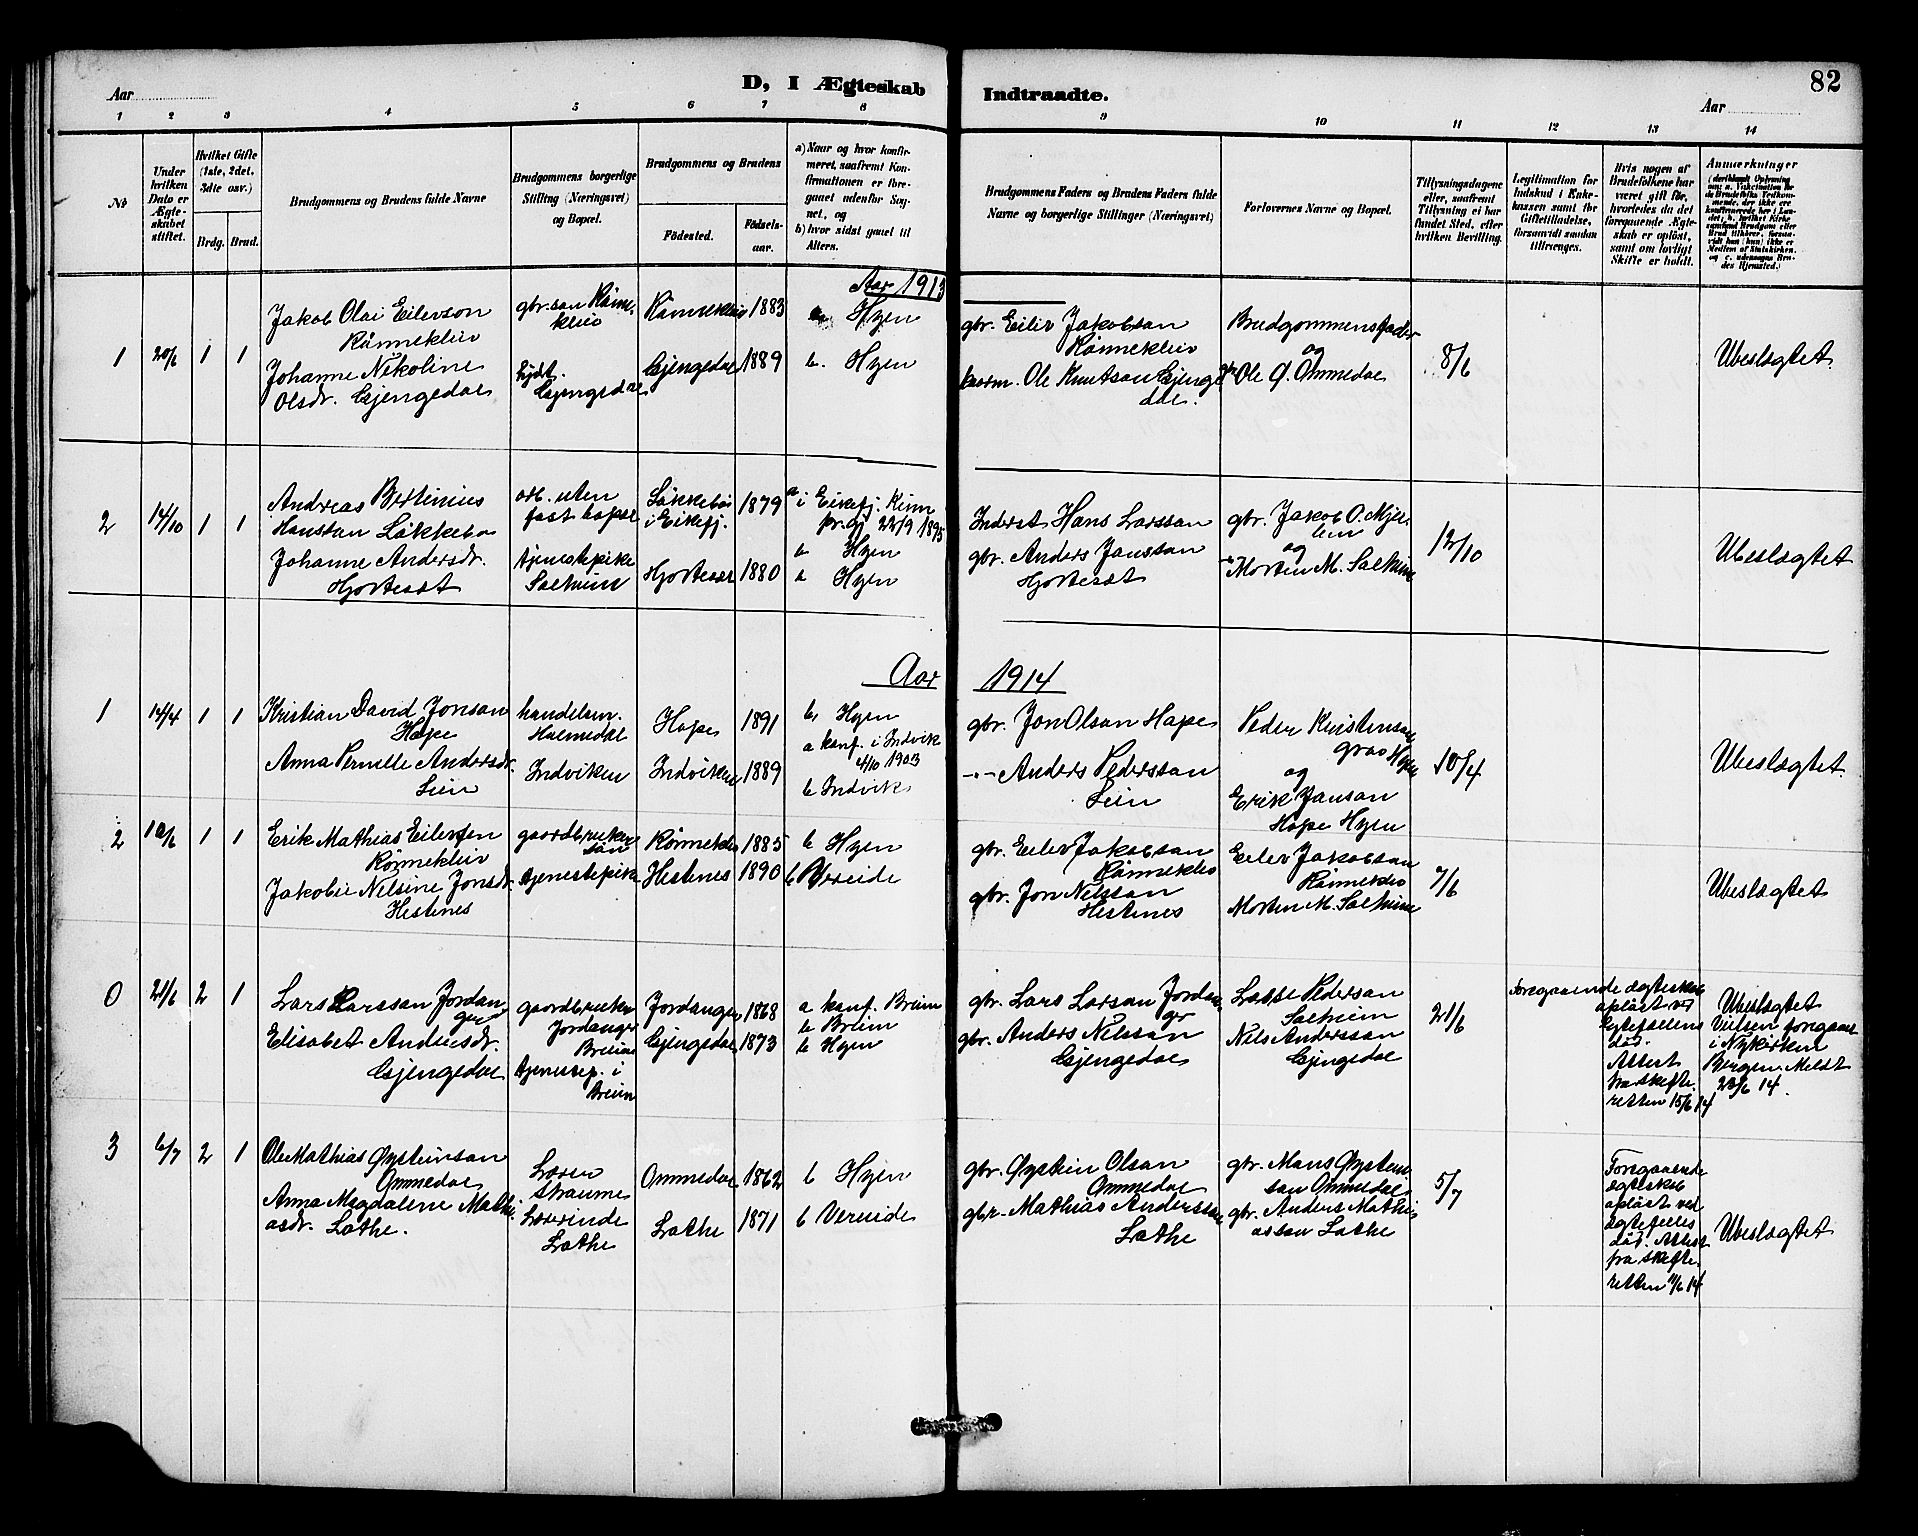 82
D, I Ægteskab Indtraadte.
Aar
Aar
1 2 3 4 5 6 7 8 9 10 11 12 13 14
No
Under hvilken Dato er Ægteskabet stiftet.
Hvilket Gifte (1ste, 2det, 3die osv.)
Brdg. Brud.
Brudgommens og Brudens fulde Navne
Brudgommens borgerlige Stilling (Næringsvei) og Bopæl.
Brudgommens og Brudens
Födested.
Födsels-aar.
a) Naar og hvor konfirmeret, saafremt Konfirmationen er foregaaet udenfor Sognet, og
b) hvor sidst gaaet til Alters.
Brudgommens Faders og Brudens Faders fulde Navne og borgerlige Stillinger (Næringsvei)
Forlovernes Navne og Bopæl.
Tillysningsdagene eller, saafremt Tillysning ei har fundet Sted, efter hvilken Bevilling.
Legitimation for Indskud i Enkekassen samt for Giftetilladelse, forsaavidt saadan tiltrænges.
Hvis nogen af Brudefolkene har været gift før, hvorledes da det foregaaende Ægteskab er oplöst, samt om lovligt Skifte er holdt.
Anmærkninger
Aar 1913
1 20/6 1 1
Jakob Olai Eilerson
Rønnekleiv
Johanne Nikoline
Olsdr. Gjengedal
gbr.søn Rønne-
kleiv
Gjengedal
Rønnekleiv 1883
Gjengedal 1889
Hyen
b. Hyen
gbr. Eiler Jakobsan
Rønnekleiv
Ole Knutsan Gjenge
dal.
Brudgommens fader
og
Ole Ø. Ommedal
8/6
Ubeslægtet.
2 14/10 1 1
Andreas Bertinius
Hanssan Løkkebø
Johanne Andersdr.
Hjortesæt
arb. uten
fast bopæl
tjenestepike
Solheim
Løkkebø
i Eikefj. 1879
Hjortesæt 1880
a i Eikefj. Kinn
pr.gj 22/9 1895
b Hyen
b Hyen
Inderst Hans Larssan
gbr. Anders Janssan
Hjortesæt
gbr. Jakob O. Mjel-
lem
og
Morten M. Solheim
12/10
Ubeslægtet
Aar 1914
1 14/4 1 1
Kristian David Jonsan
Hope
Anna Pernelle Andersdr.
Lien
handelsm.
Holmedal
Indviken
Hope 1891
Indviken 1889
b, Hyen
a konf. i Indvik
4/10 1903
b Indvik
gbr. Jon Olsan Hope
-"- Anders Pedersson
Lien
Peder Kristensan
graa Hyen
og
Erik Jansan
Hope Hyen
10/4
Ubeslægtet.
2 10/6 1 1
Erik Mathias Eilersen
Rønnekleiv
Jakobie Nilsine Jonsdr.
Hestenes
gaardbruker
søn
tjenestepike
Rønneklev 1885
Hestenes 1890
b Hyen
b Vereide
gbr. Eiler Jakobsan
Rønneklev
gbr. Jon Nelssan
Hestenes
Eiler Jakobsan
Rønneklev
Morten M. Solheim
7/6
Ubeslægtet
0 21/6 2 1
Lars Larssan Jordan
ger
Elisabet Andersdr.
Gjengedal
gaardbruker
Jordanger
Breim
tjenestep. i
Breim
Jordanger 1868
Gjengedal 1873
a konf. Breim
b Breim
b Hyen
gbr. Lars Larsan Jordan-
ger
gbr. Anders Nilssan
Gjengedal
Lasse Pedersan
Solheim
Nils Anderssan
Gjengedal
21/6
Foregaaende ægteskab
opløst ved
Ægtefællens
død.
Attest
fra skifte-
retten 15/6 14
Ubeslægtet
Vielsen foregaat
i Nykirken
Bergen. Meldt
23/6 14.
3 6/7 2 1
Ole Mathias Øysteinsan
Ommedal
Anna Magdalene Mathi-
asdr. Lothe.
Lærer
Straume
Lærerinde
Lothe
Ommedal 1862
Lothe 1871
b Hyen
b Vereide
gbr. Øystein Olsan
Ommedal
gbr. Mathias Anderssan
Lothe
gbr. Mons Øystein
san Ommedal
gbr. Anders Mathi
assan Lothe
5/7
Foregaaende
ægteskab
opløst ved
ægtefælles
død. Attest
fra skifte-
retten 11/6 14
Ubeslægtet